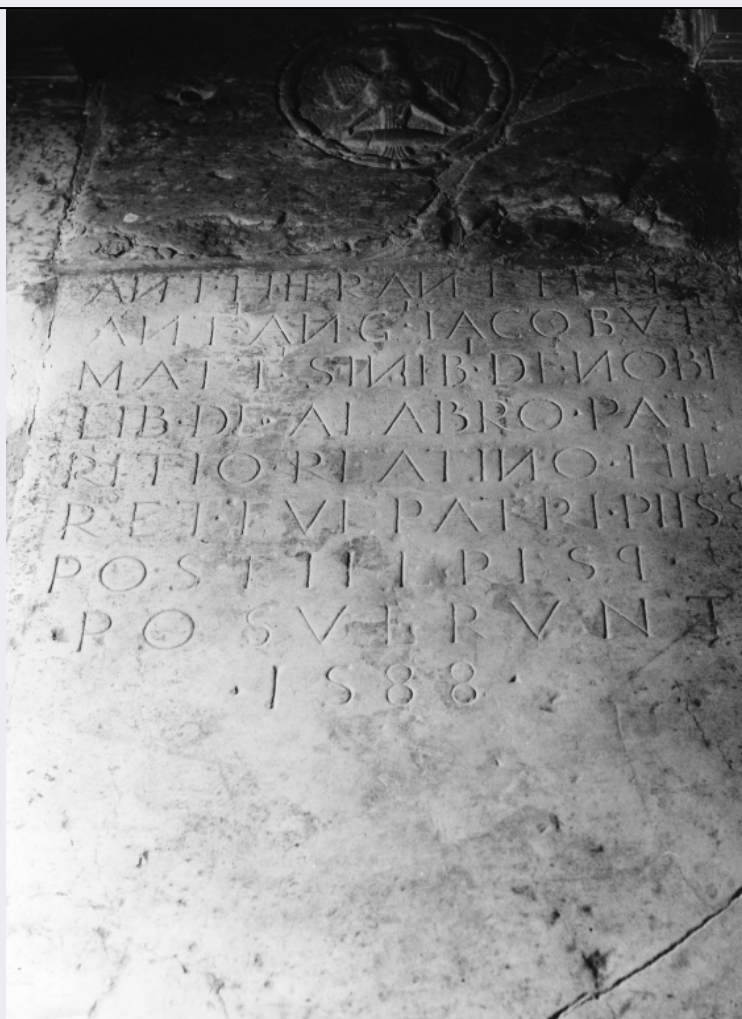 ANT
ANT·ANG·IACOBVT
MATT SINIB·DE·NOBI
LIB·DE·ALABRO·PAT
RITIO·REATINO·
RET·FVL PATRI·PIISS
POSTERISQ
POSVERVNT
·1588·